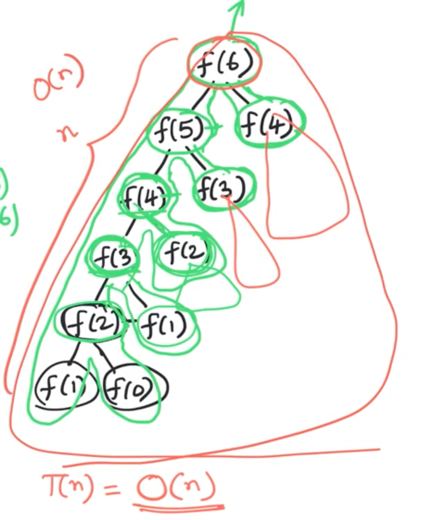 f(6)
O(n)
n
f(5)
f(4)
)
6)
f(4)
f(3)
f(3
f(2)
f(2)
f(1)
f(1)
f(0)
T(n) = O(n)